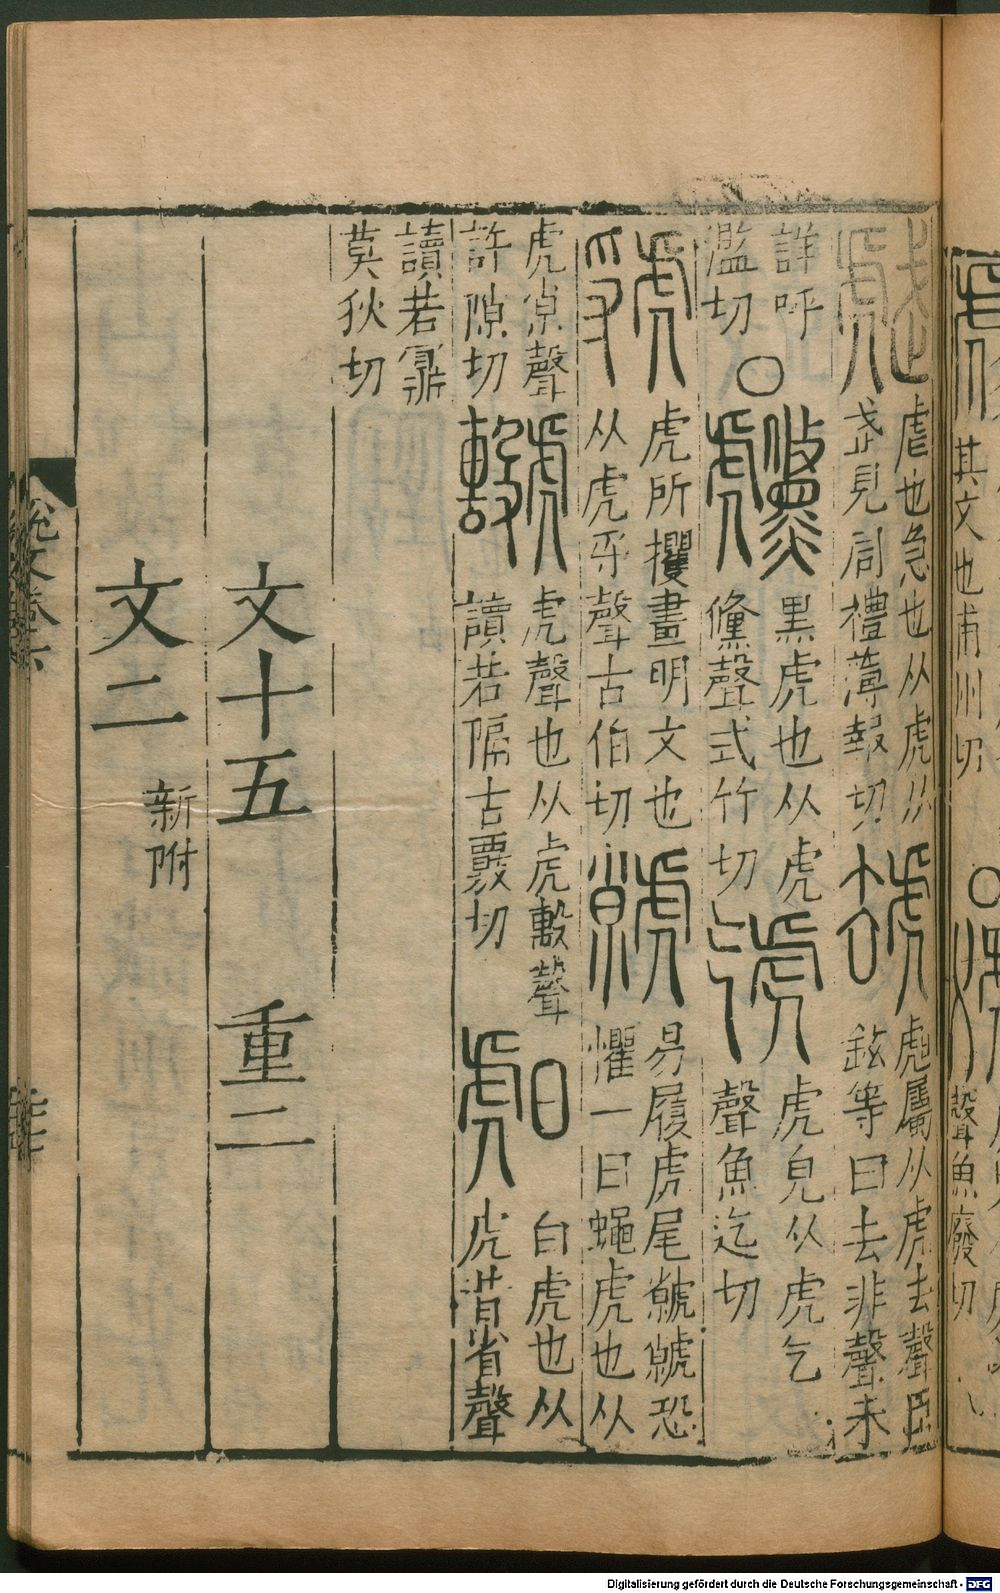 其文也甫州切
聲魚廢切
虣
虐也急也从虎从
武見周禮薄報切
屬从虎去聲臣
鉉等曰去非聲未
詳呼
濫切
○
虪
黑虎也从虎
儵聲式竹切
虎皃从虎乞
聲魚迄切
虢
虎所攫畫明文也
从虎寽聲古伯切
虩
易履虎尾虩虩恐
懼一曰蠅虎也从
虎𡭴聲
許隙切
虎聲也从虎㱿聲
讀若隔古覈切
甝
白虎也从
虎昔省聲
讀若鼏
莫狄切
文十五　重二
文二 新附
說文卷六
Digitalisierung gefördert durch die Deutsche Forschungsgemeinschaft - DFG